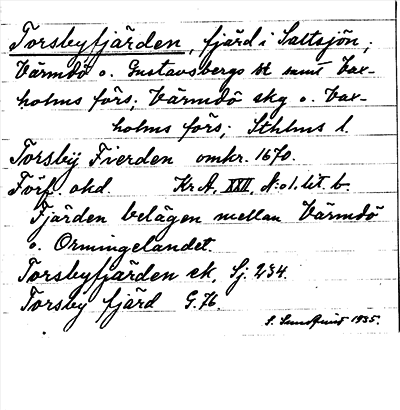 Torsbyfjärden, fjärd i Saltsjön;
Värmdö o. Gustavsbergs sk samt Vax-
holms förs; Värmdö skg o. Vax-
holms förs; Sthlms l.
Torsbÿ Fierden omkr. 1670.
Förf. okd. Kr A, XXII, N:o 1. lit. b.
Fjärden belägen mellan Värmdö
o. Ormingelandet.
Torsbyfjärden ek, Sj. 234.
Torsby fjärd G. 76.
S. Sundquist 1935.